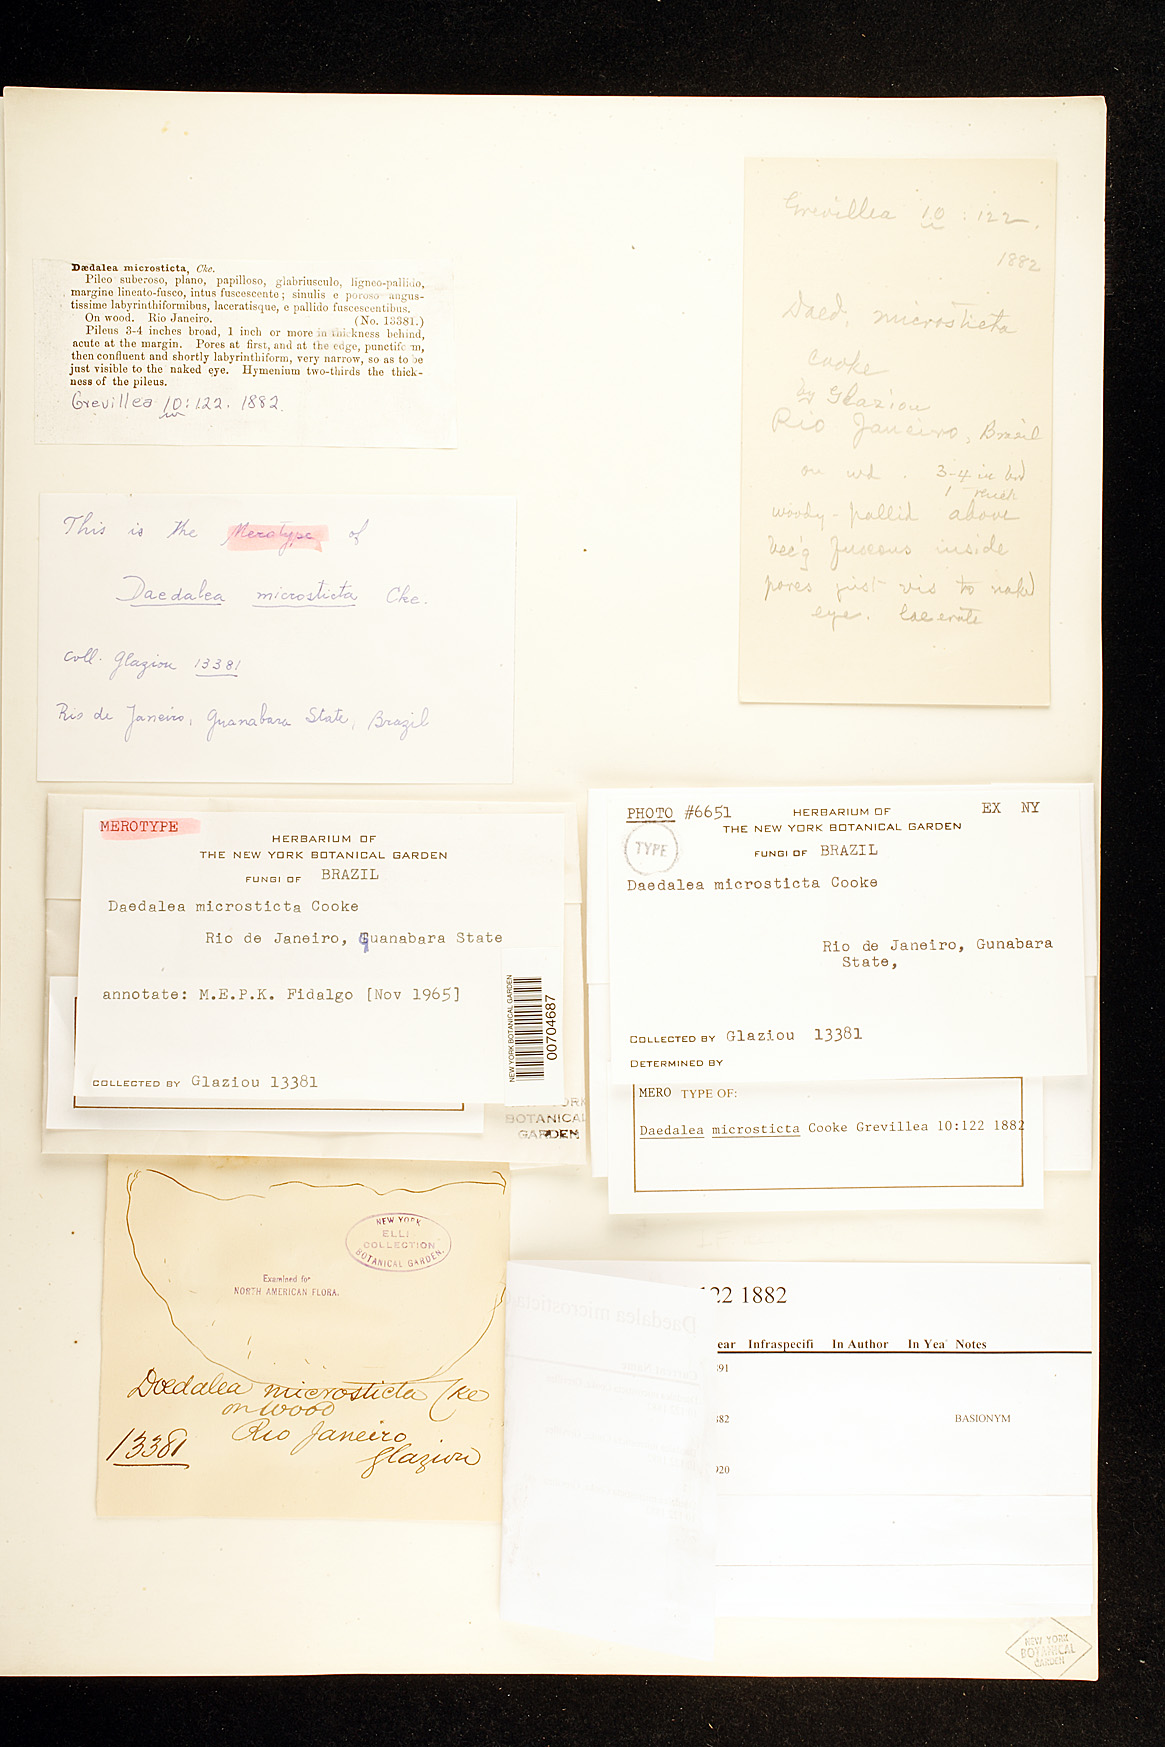 Dædalea microsticta, Cke.
Pileo suberoso, plano, papilloso, glabriusculo, ligneo-pallido,
margine lineato-fusco, intus fuscescente; sinulis e poroso angus-
tissime labyrinthiformibus, laceratisque, e pallido fuscescentibus.
On wood. Rio Janeiro. (No. 13381.)
Pileus 3-4 inches broad, 1 inch or more in thickness behind,
acute at the margin. Pores at first, and at the edge, punctiform,
then confluent and shortly labyrinthiform, very narrow, so as to be
just visible to the naked eye. Hymenium two-thirds the thick-
ness of the pileus.
Grevillea 10:122. 1882.
Grevillea 10:122.
1882
Daed. microsticta
Cooke
by Glaziou
Rio Janeiro, Brazil
on wd. 3-4 in brd
1 thick
woody-pallid above
bec'g fuscous inside
pores just vis to naked
eye. lacerate
This is the Merotype of
Daedalea microsticta Cke.
Coll. Glaziou 13381
Rio de Janeiro, Guanabara State, Brazil
MEROTYPE
HERBARIUM OF
THE NEW YORK BOTANICAL GARDEN
FUNGI OF BRAZIL
Daedalea microsticta Cooke
Rio de Janeiro, Guanabara State
annotate: M.E.P.K. Fidalgo [Nov 1965]
COLLECTED BY Glaziou 13381
NEW YORK BOTANICAL GARDEN
00704687
BOTANICAL
GARDEN
PHOTO #6651 HERBARIUM OF EX NY
THE NEW YORK BOTANICAL GARDEN
TYPE
FUNGI OF BRAZIL
Daedalea microsticta Cooke
Rio de Janeiro, Gunabara
State,
COLLECTED BY Glaziou 13381
DETERMINED BY
MERO TYPE OF:
Daedalea microsticta Cooke Grevillea 10:122 1882
NEW YORK
ELLIS
COLLECTION
BOTANICAL GARDEN.
Examined for
NORTH AMERICAN FLORA.
Daedalea microsticta Cke
on wood
Rio Janeiro
13381
Glaziou
122 1882
ear Infraspecifi In Author In Yea Notes
91
82 BASIONYM
920
NEW YORK
BOTANICAL
GARDEN